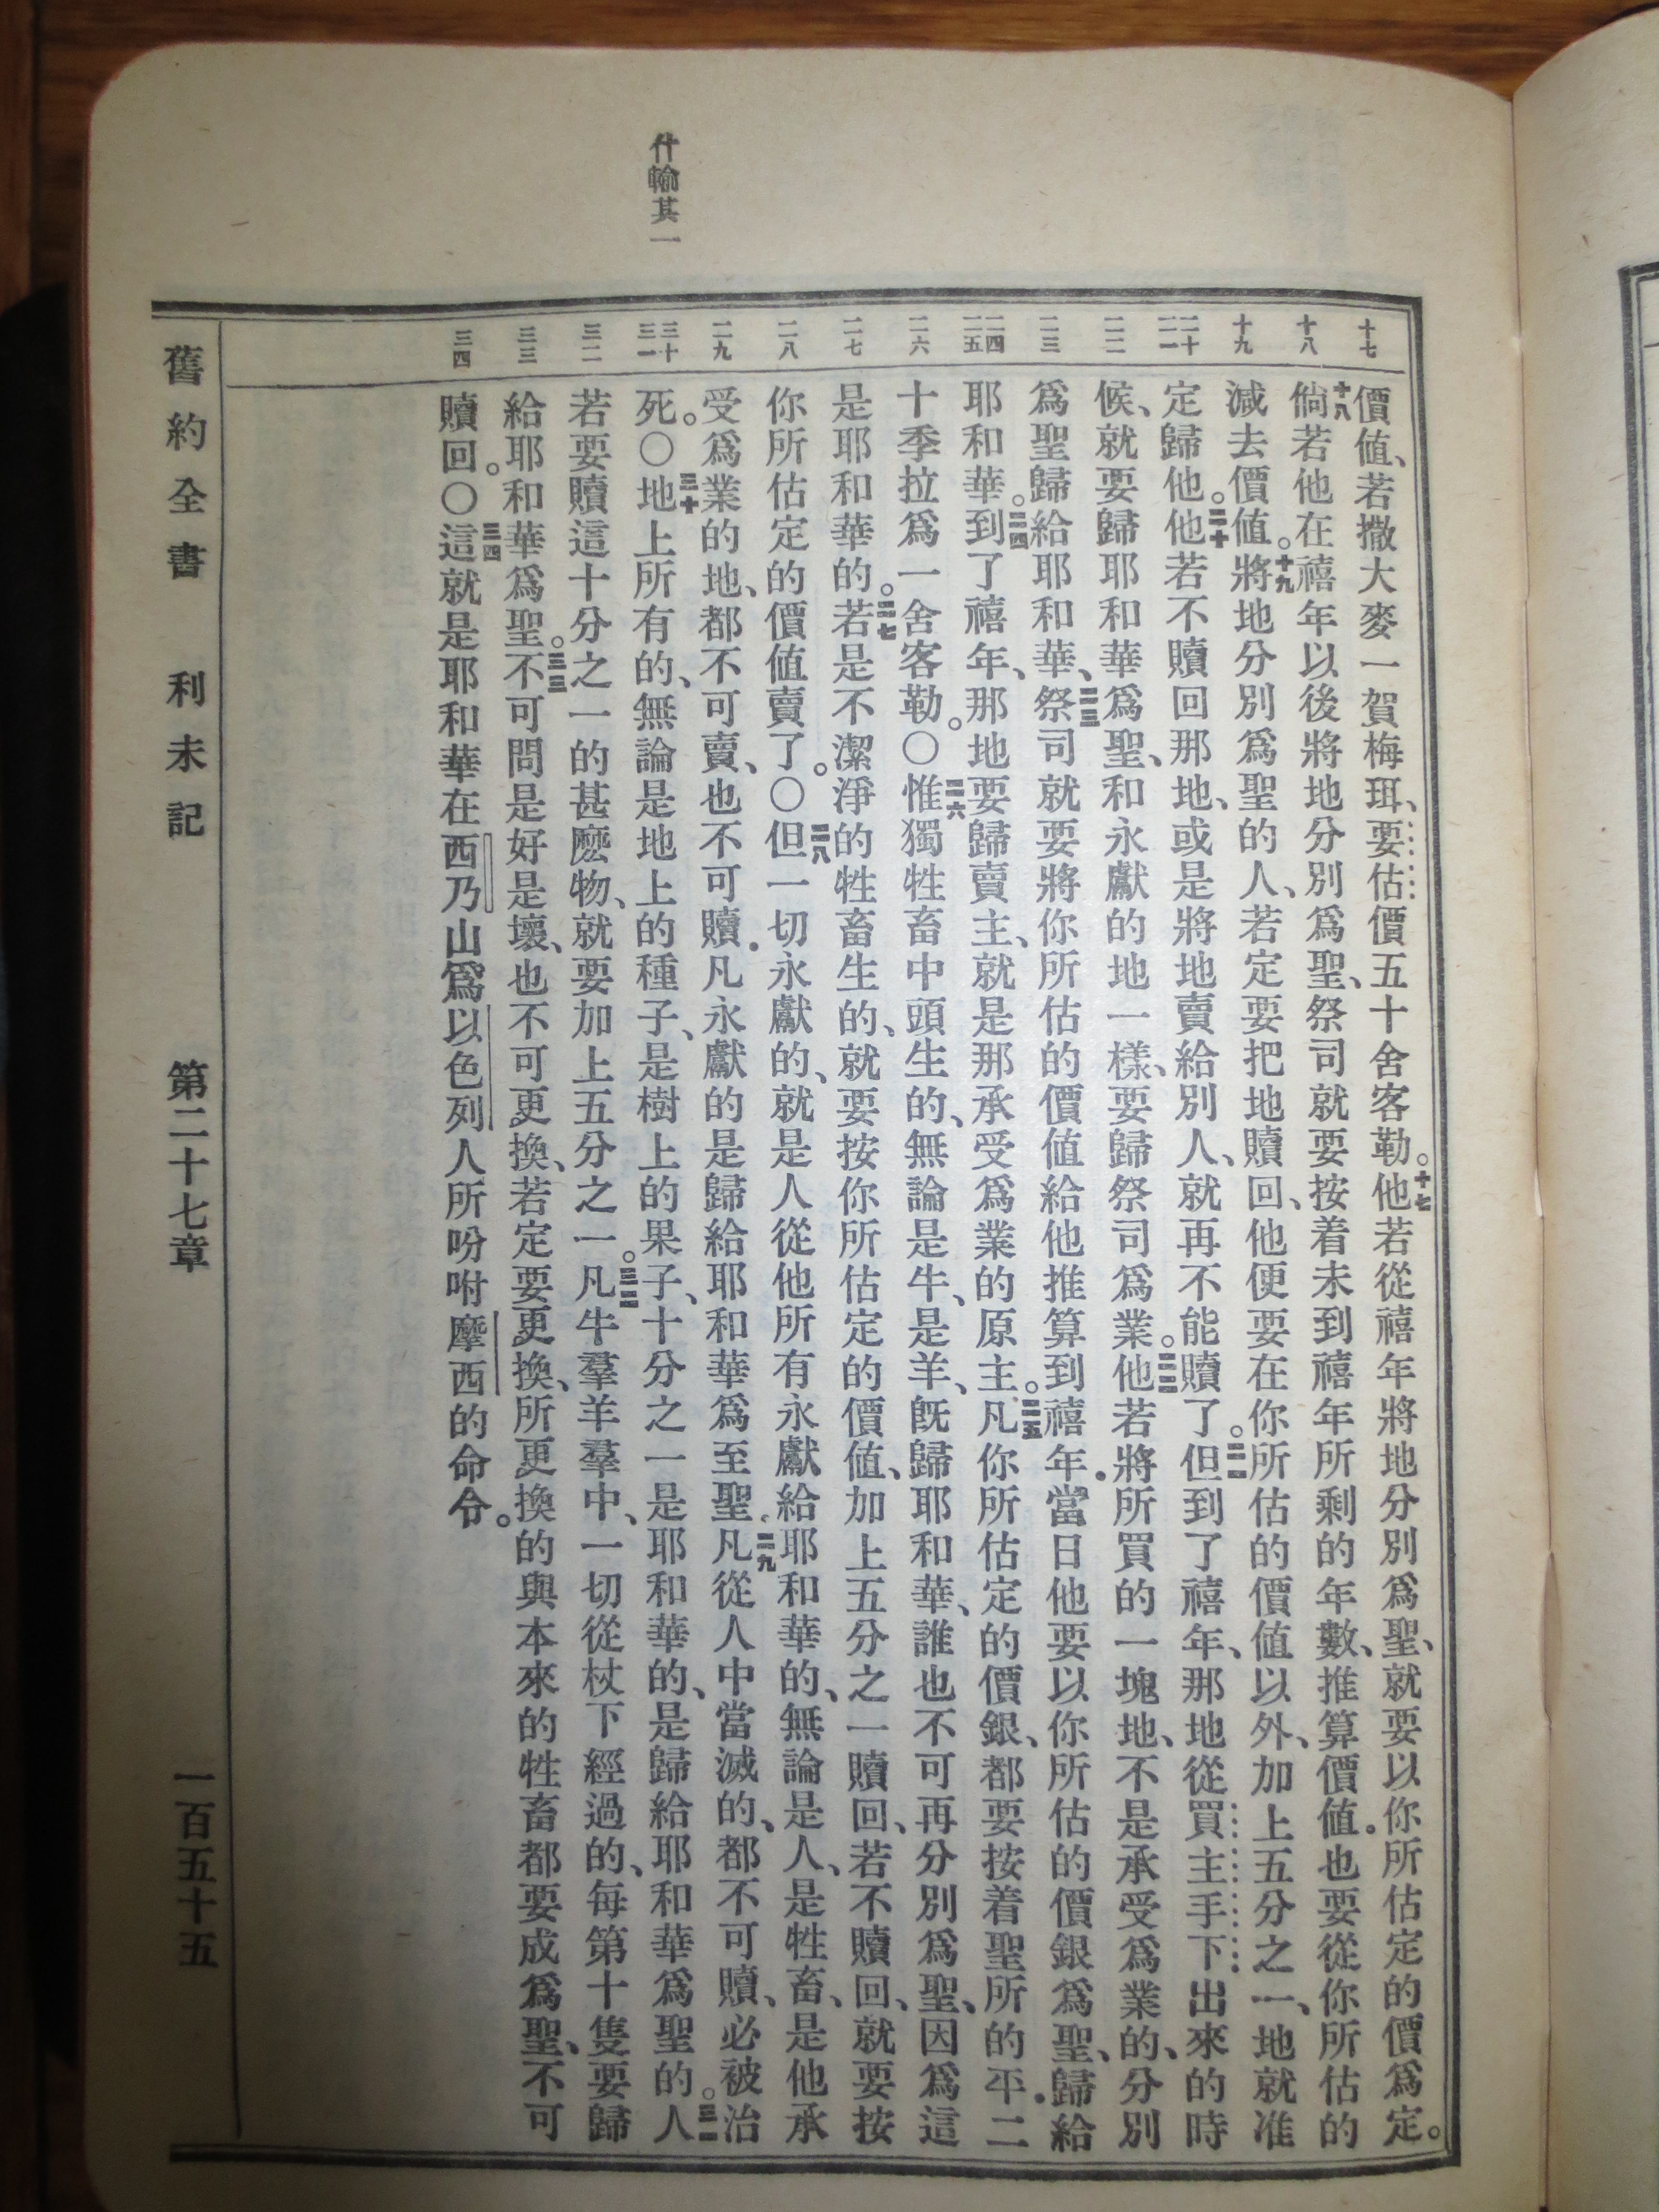 什輸其一
十七
價值、若撒大麥一賀梅珥、要估價五十舍客勒。十七他若從禧年將地分別爲聖、就要以你所估定的價爲定。
十八
十八倘若他在禧年以後將地分別爲聖、祭司就要按着未到禧年所剩的年數、推算價值．也要從你所估的
十九
減去價值。十九將地分別爲聖的人、若定要把地贖回、他便要在你所估的價值以外、加上五分之一、地就准
二十 二一
定歸他。二十他若不贖回那地、或是將地賣給別人、就再不能贖了。二一但到了禧年、那地從買主手下出來的時
二二
候、就要歸耶和華爲聖、和永獻的地一樣、要歸祭司爲業。二二他若將所買的一塊地、不是承受爲業的、分別
二三
爲聖歸給耶和華、二三祭司就要將你所估的價值給他推算到禧年．當日他要以你所估的價銀爲聖、歸給
二四 二五
耶和華。二四到了禧年、那地要歸賣主、就是那承受爲業的原主。二五凡你所估定的價銀、都要按着聖所的平．二
二六
十季拉爲一舍客勒。〇二六惟獨牲畜中頭生的、無論是牛、是羊、旣歸耶和華、誰也不可再分別爲聖、因爲這
二七
是耶和華的。二七若是不潔淨的牲畜生的、就要按你所估定的價值、加上五分之一贖回、若不贖回、就要按
二八
你所估定的價值賣了。〇二八但一切永獻的、就是人從他所有永獻給耶和華的、無論是人、是牲畜、是他承
二九
受爲業的地、都不可賣、也不可贖．凡永獻的是歸給耶和華爲至聖．二九凡從人中當滅的、都不可贖、必被治
三十 三一
死。〇三十地上所有的、無論是地上的種子、是樹上的果子、十分之一是耶和華的、是歸給耶和華爲聖的。三一人
三二
若要贖這十分之一的甚麽物、就要加上五分之一。三二凡牛羣羊羣中、一切從杖下經過的、每第十隻要歸
三三
給耶和華爲聖。三三不可問是好是壞、也不可更換、若定要更換、所更換的與本來的牲畜都要成爲聖、不可
三四
贖回。〇三四這就是耶和華在西乃山爲以色列人所吩咐摩西的命令。
舊約全書 利未記 第二十七章 一百五十五